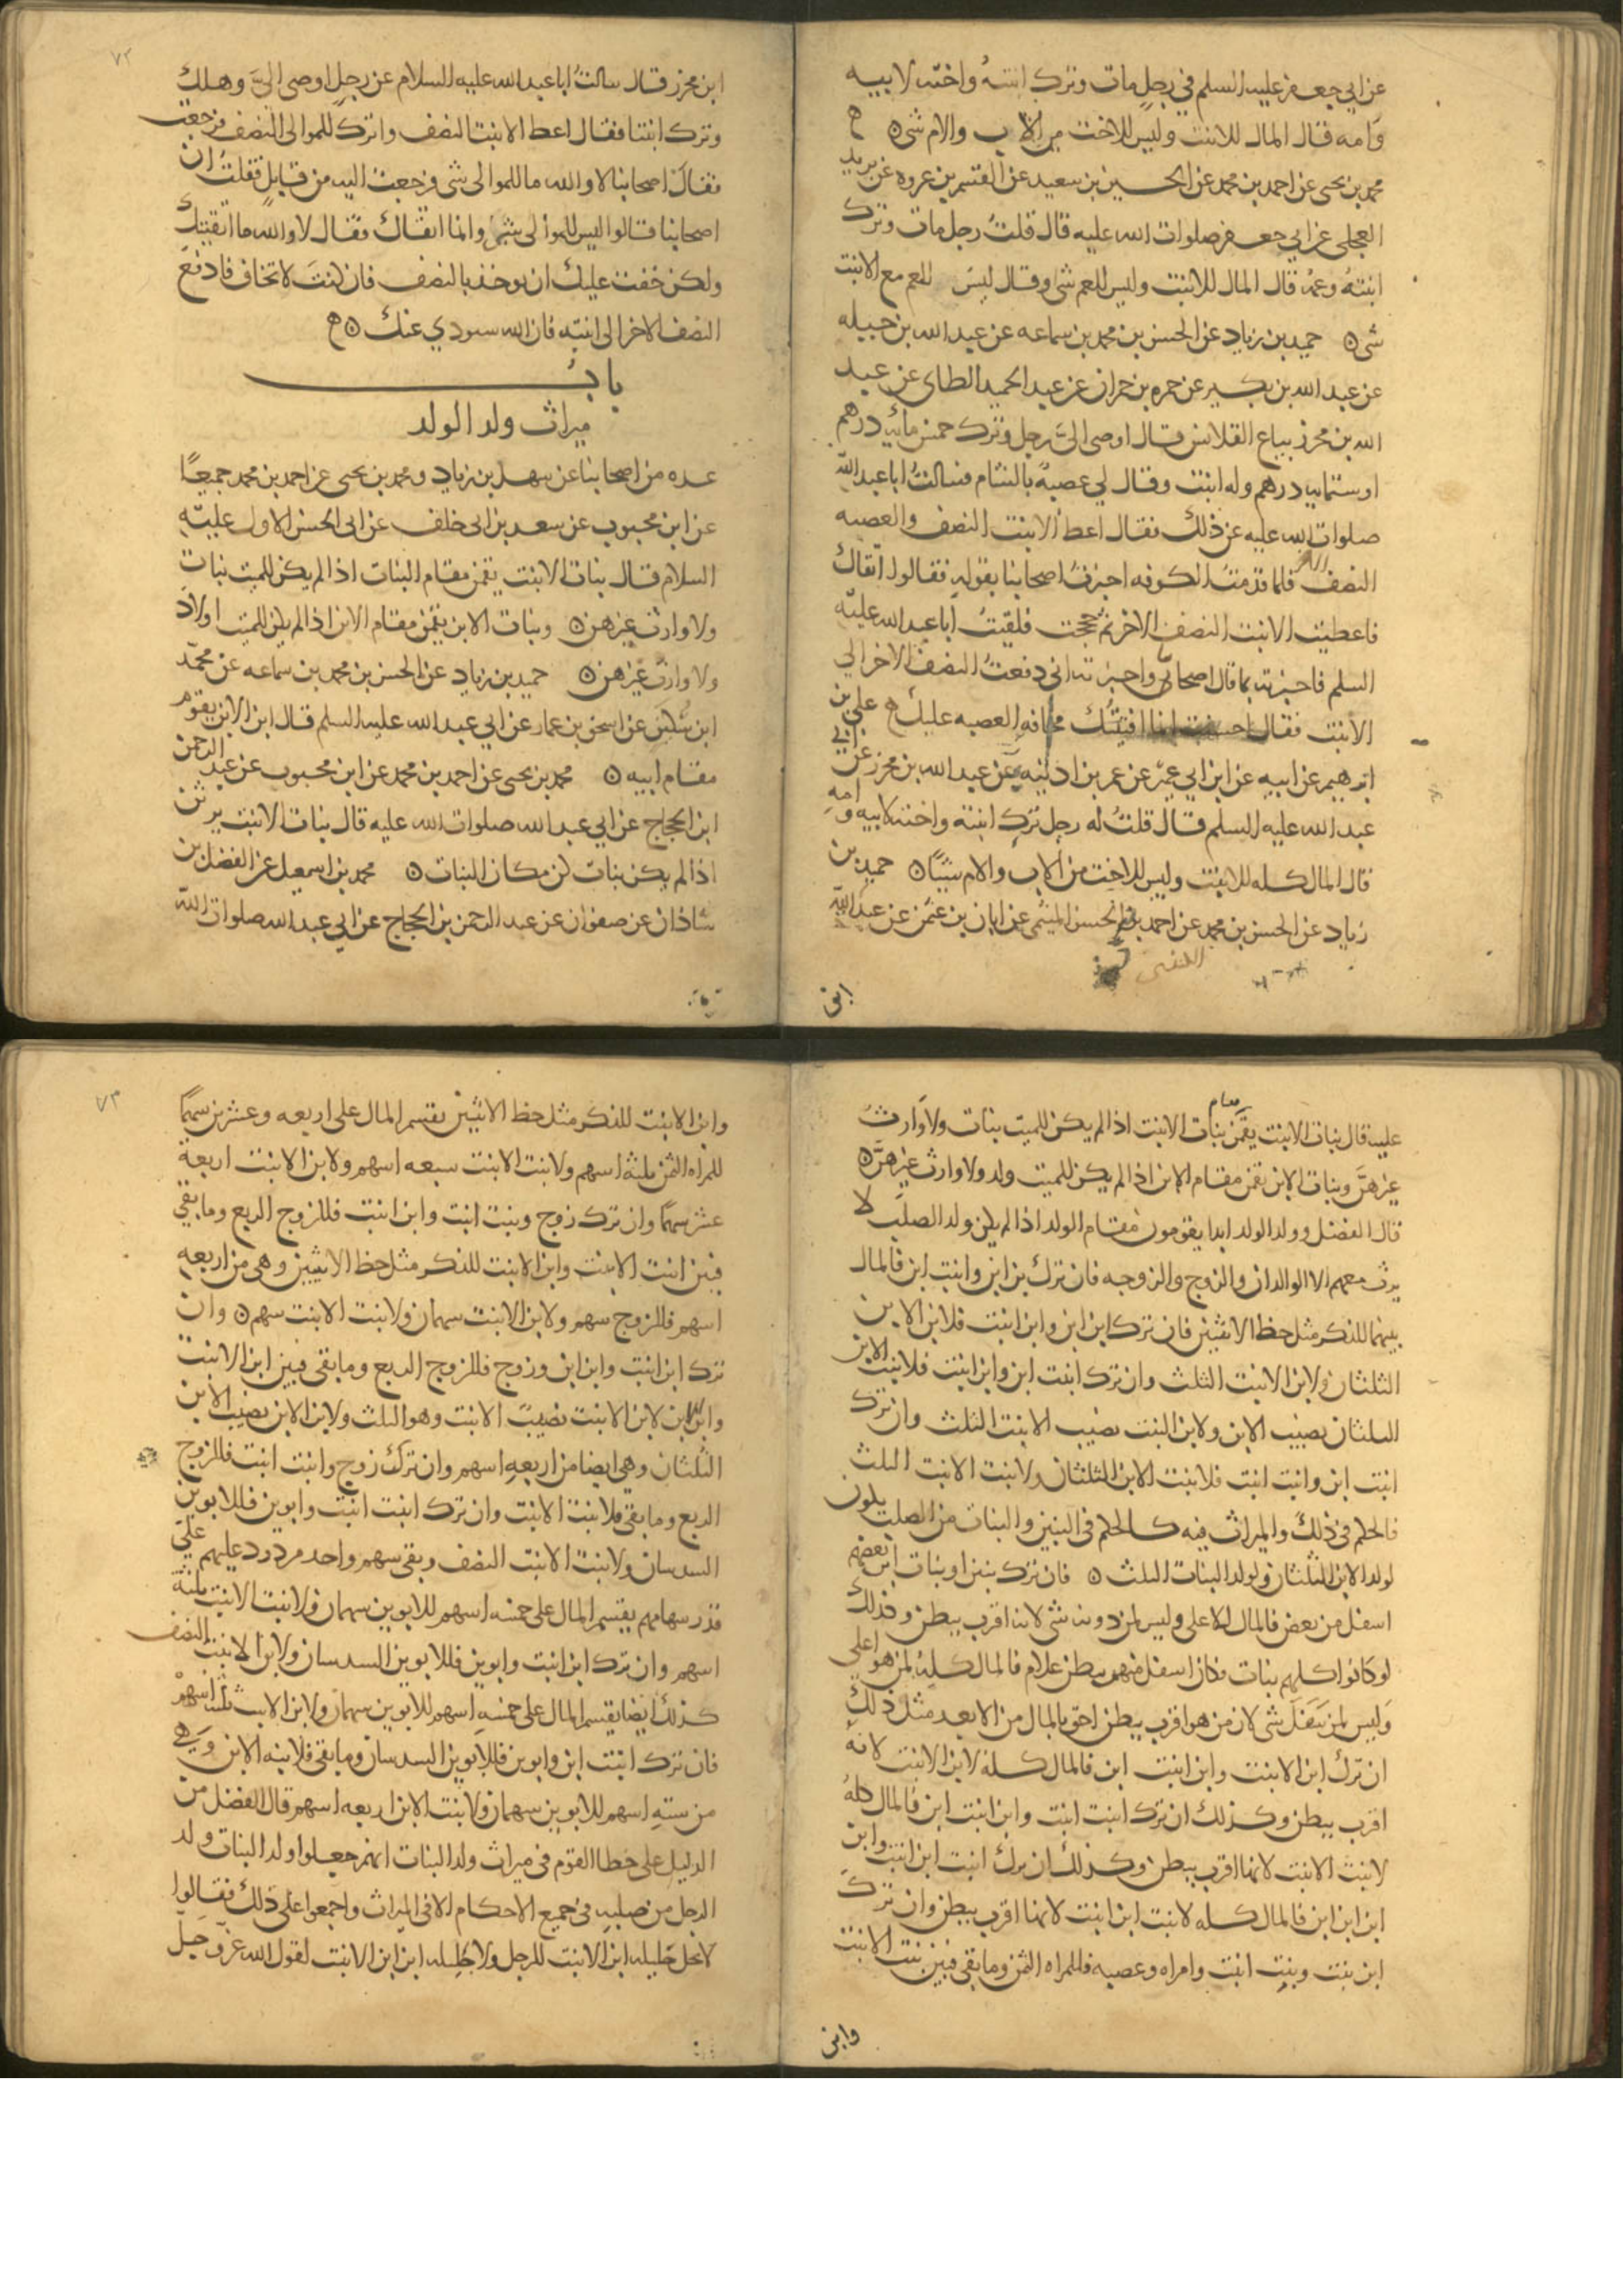 عن ابي جعفر عليه السلم في رجل مات وترك ابنته واخته لابيه
وامه قال المال للابنت وليس للاخت من الاب والام شي
محمد بن يحيى عن احمد بن محمد عن الحسين بن سعيد عن القسم بن عروه عن بريد
العجلي عن ابي جعفر صلوات الله عليه قال قلت رجل مات وترك
ابنته وعمه قال المال للابنت وليس للعم شي وقال ليس للعم مع الابنت
شي حميد بن زياد عن الحسن بن محمد بن سماعه عن عبد الله بن جبله
عن عبد الله بن بكير عن حمزه بن حمران عن عبد الحميد الطاى عن عبد
الله بن محرز بياع القلانس قال اوصى الى رجل وترك خمس مايه درهم
او ستمايه درهم وله ابنت وقال لي عصبة بالشام فسالت ابا عبد الله
صلوات الله عليه عن ذلك فقال اعط الابنت النصف والعصبه
النصف الاخر فلما قدمت الكوفه اخبرت اصحابنا بقوله فقالوا اتقاك
فاعطيت الابنت النصف الاخر ثم حججت فلقيت ابا عبد الله عليه
السلم فاخبرته بما قال اصحابي واخبرته اني دفعت النصف الاخر الى
الابنت فقال احسنت انما افتيتك مخافه العصبه عليك علي بن
ابرهيم عن ابيه عن ابن ابي عمير عن عمر بن اذينه عن عبد الله بن محرز عن ابي
عبد الله عليه السلم قال قلت له رجل ترك ابنته واخته لابيه وامه
قال المال كله للابنت وليس للاخت من الاب والام شيئا حميد بن
زياد عن الحسن بن محمد عن احمد بن الحسن الميثمي عن ابان بن عثمن عن عبد الله
ابن
٧٢
ابن محرز قال سالت ابا عبد الله عليه السلام عن رجل اوصى الي وهلك
وترك ابنتا فقال اعط الابنت النصف واترك للموالى النصف فرجعت
فقال اصحابنا لا والله ما للموالى شي فرجعت اليه من قابل فقلت ان
اصحابنا قالوا ليس للموالى شي وانما اتقاك فقال لا والله ما اتقيتك
ولكن خفت عليك ان يوخذ بالنصف فان كنت لا تخاف فادفع
النصف الاخر الى ابنته فان الله سيودي عنك
باب
ميراث ولد الولد
عده من اصحابنا عن سهل بن زياد ومحمد بن يحيى عن احمد بن محمد جميعا
عن ابن محبوب عن سعد بن ابي خلف عن ابي الحسن الاول عليه
السلام قال بنات الابنت يقمن مقام البنات اذا لم يكن للميت بنات
ولا وارث غيرهن وبنات الابن يقمن مقام الابن اذا لم يكن للميت اولاد
ولا وارث غيرهن حميد بن زياد عن الحسن بن محمد بن سماعه عن محمد
ابن سكين عن اسحق بن عمار عن ابي عبد الله عليه السلم قال ابن الابن يقوم
مقام ابيه محمد بن يحيى عن احمد بن محمد عن ابن محبوب عن عبد الرحمن
ابن الحجاج عن ابي عبد الله صلوات الله عليه قال بنات الابنت يرثن
اذا لم يكن بنات كن مكان البنات محمد بن اسمعيل عن الفضل بن
شاذان عن صفوان عن عبد الرحمن بن الحجاج عن ابي عبد الله صلوات الله
عليه قال بنات الابنت يقمن مقام بنات الابنت اذا لم يكن للميت بنات ولا وارث
غيرهن وبنات الابن يقمن مقام الابن اذا لم يكن للميت ولد ولا وارث غيرهن
قال الفضل وولد الولد ابدا يقومون مقام الولد اذا لم يكن ولد الصلب لا
يرث معهم الا الوالدان والزوج والزوجه فان ترك بن ابن وابنت ابن فالمال
بينهما للذكر مثل حظ الانثيين فان ترك ابن ابن وابن ابنت فلابن الابن
الثلثان ولابن الابنت الثلث وان ترك ابنت ابن وابن ابنت فلابنت الابن
الثلثان نصيب الابن ولابن البنت نصيب الابنت الثلث وان ترك
ابنت ابن وابنت ابنت فلابنت الابن الثلثان ولابنت الابنت الثلث
فالحكم في ذلك والميراث فيه كالحكم في البنين والبنات من الصلب يكون
لولد الابن الثلثان ولولد البنات الثلث فان ترك بنين او بنات ابن بعضهم
اسفل من بعض فالمال للاعلى وليس لمن دونه شي لانه اقرب ببطن وكذلك
لو كانوا كلهم بنات فكان اسفل منهم ببطن غلام فالمال كله لمن هو اعلى
وليس لمن سفل شي لان من هو اقرب ببطن احق بالمال من الابعد مثل ذلك
ان ترك ابن الابنت وابن ابنت ابن فالمال كله لابن الابنت لانه
اقرب ببطن وكذلك ان ترك ابنت ابنت وابن ابنت ابن فالمال كله
لابنت الابنت لانها اقرب ببطن وكذلك ان ترك ابنت ابن ابنت وابن
ابن ابن ابن فالمال كله لابنت ابن ابنت لانها اقرب ببطن وان ترك
ابن بنت وبنت ابنت وامراه وعصبه فللمراه الثمن وما بقي فبين بنت الابنت
وابن
٧٣
وابن الابنت للذكر مثل حظ الانثيين يقسم المال على اربعه وعشرين سهما
للمراه الثمن ثلثة اسهم ولابنت الابنت سبعه اسهم ولابن الابنت اربعة
عشر سهما وان ترك زوج وبنت ابنت وابن ابنت فللزوج الربع وما بقي
فبين ابنت الابنت وابن الابنت للذكر مثل حظ الانثيين وهي من اربعه
اسهم فللزوج سهم ولابن الابنت سهمان ولابنت الابنت سهم وان
ترك ابن ابنت وابن ابن وزوج فللزوج الربع وما بقي فبين ابن الابنت
وابن الابن لابن الابنت نصيب الابنت وهو الثلث ولابن الابن نصيب الابن
الثلثان وهي ايضا من اربعه اسهم وان ترك زوج وابنت ابنت فللزوج
الربع وما بقي فلابنت الابنت وان ترك ابنت ابنت وابوين فللابوين
السدسان ولابنت الابنت النصف وبقى سهم واحد مردود عليهم على
قدر سهامهم يقسم المال على خمسه اسهم للابوين سهمان ولابنت الابنت ثلثة
اسهم وان ترك ابن ابنت وابوين فللابوين السدسان ولابن الابنت النصف
كذلك ايضا يقسم المال على خمسه اسهم للابوين سهمان ولابن الابنت ثلثه اسهم
فان ترك ابنت ابن وابوين فللابوين السدسان وما بقي فلابنه الابن وهي
من سته اسهم للابوين سهمان ولابنت الابن اربعه اسهم قال الفضل من
الدليل على خطا القوم في ميراث ولد البنات انهم جعلوا ولد البنات ولد
الرجل من صلبه في جميع الاحكام الا في الميراث واجمعوا على ذلك فقالوا
لا تحل حليله ابن الابنت للرجل ولا حليله ابن ابن الابنت لقول الله عز وجل